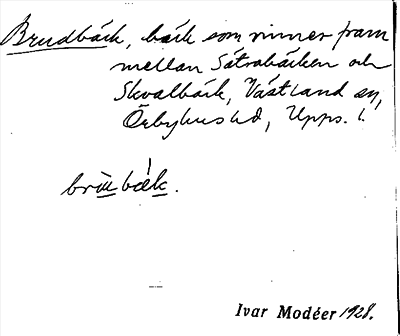 Brudbäck, bäck som rinner fram
mellan Sätrabäcken och
Skvalbäck, Västland sn,
Örbyhus hd, Upps. l.
brùbæk.
Ivar Modéer 1928.